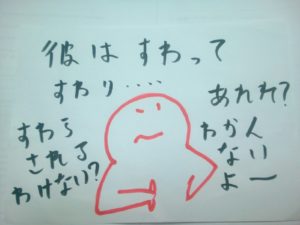 彼はすわって
すわり....
あれれ?
すわら
される
わけない?
わかん
ない
よー